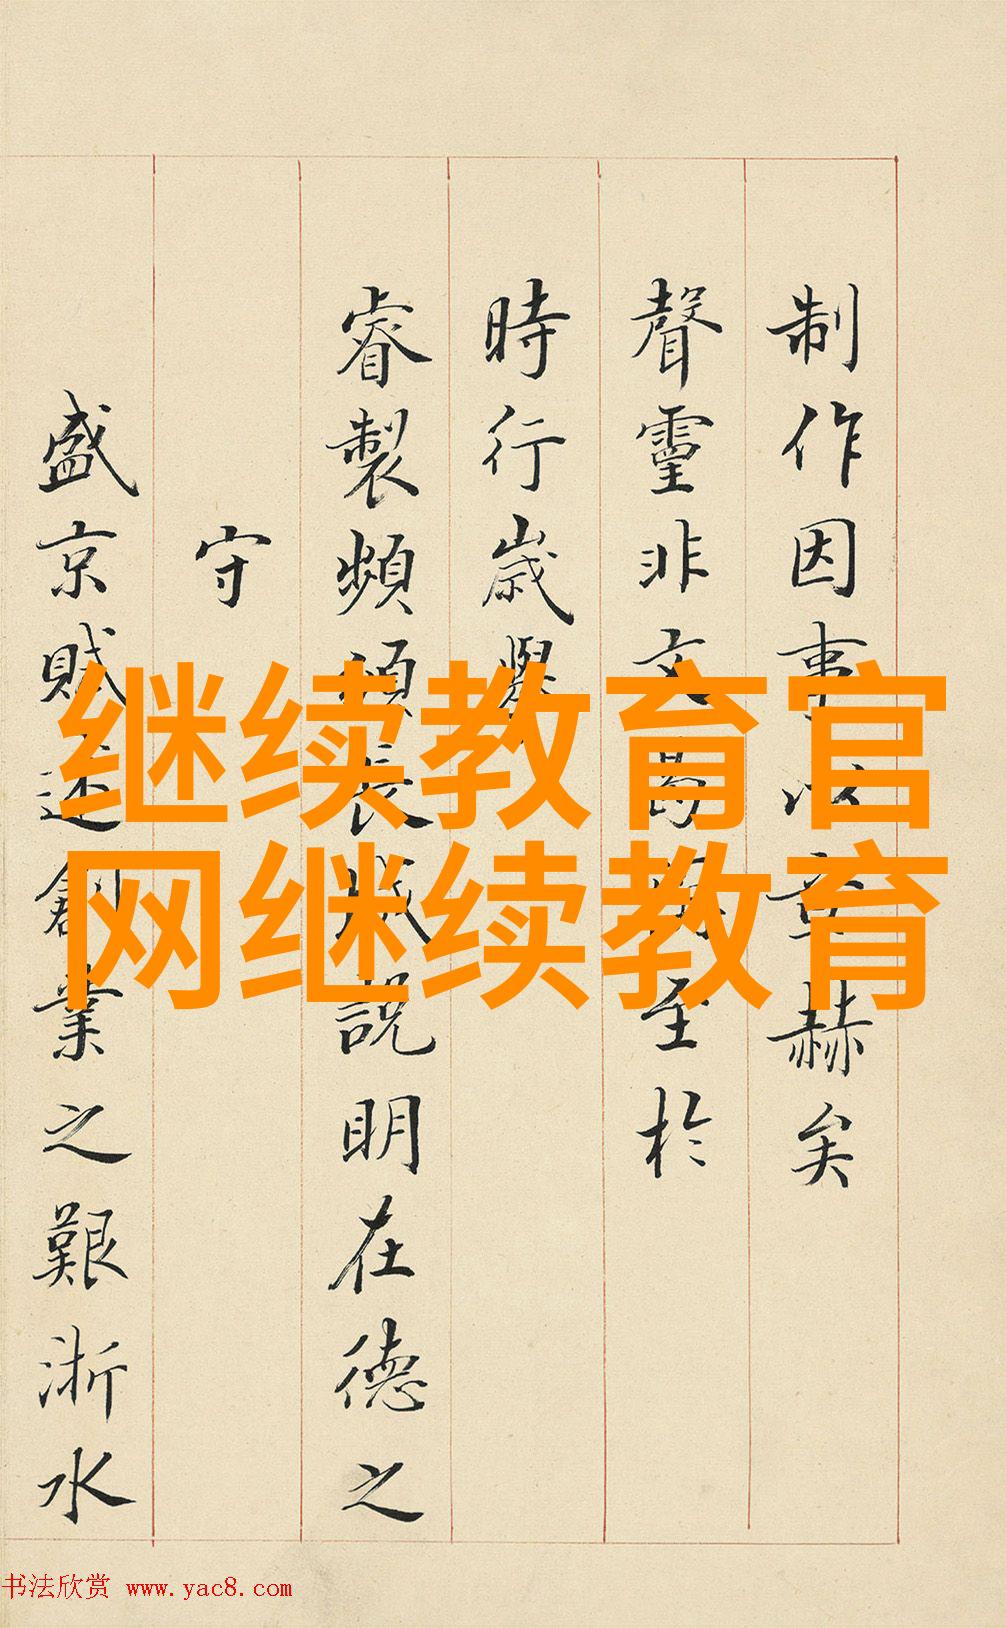 制作因事以章赫矣
聲靈非文曷至於
時行歲舉
睿製頻頒長城説明在德之
守
盛京賦述創業之艱浙水
继续教育官
网继续教育
书法欣赏 www.yac8.com